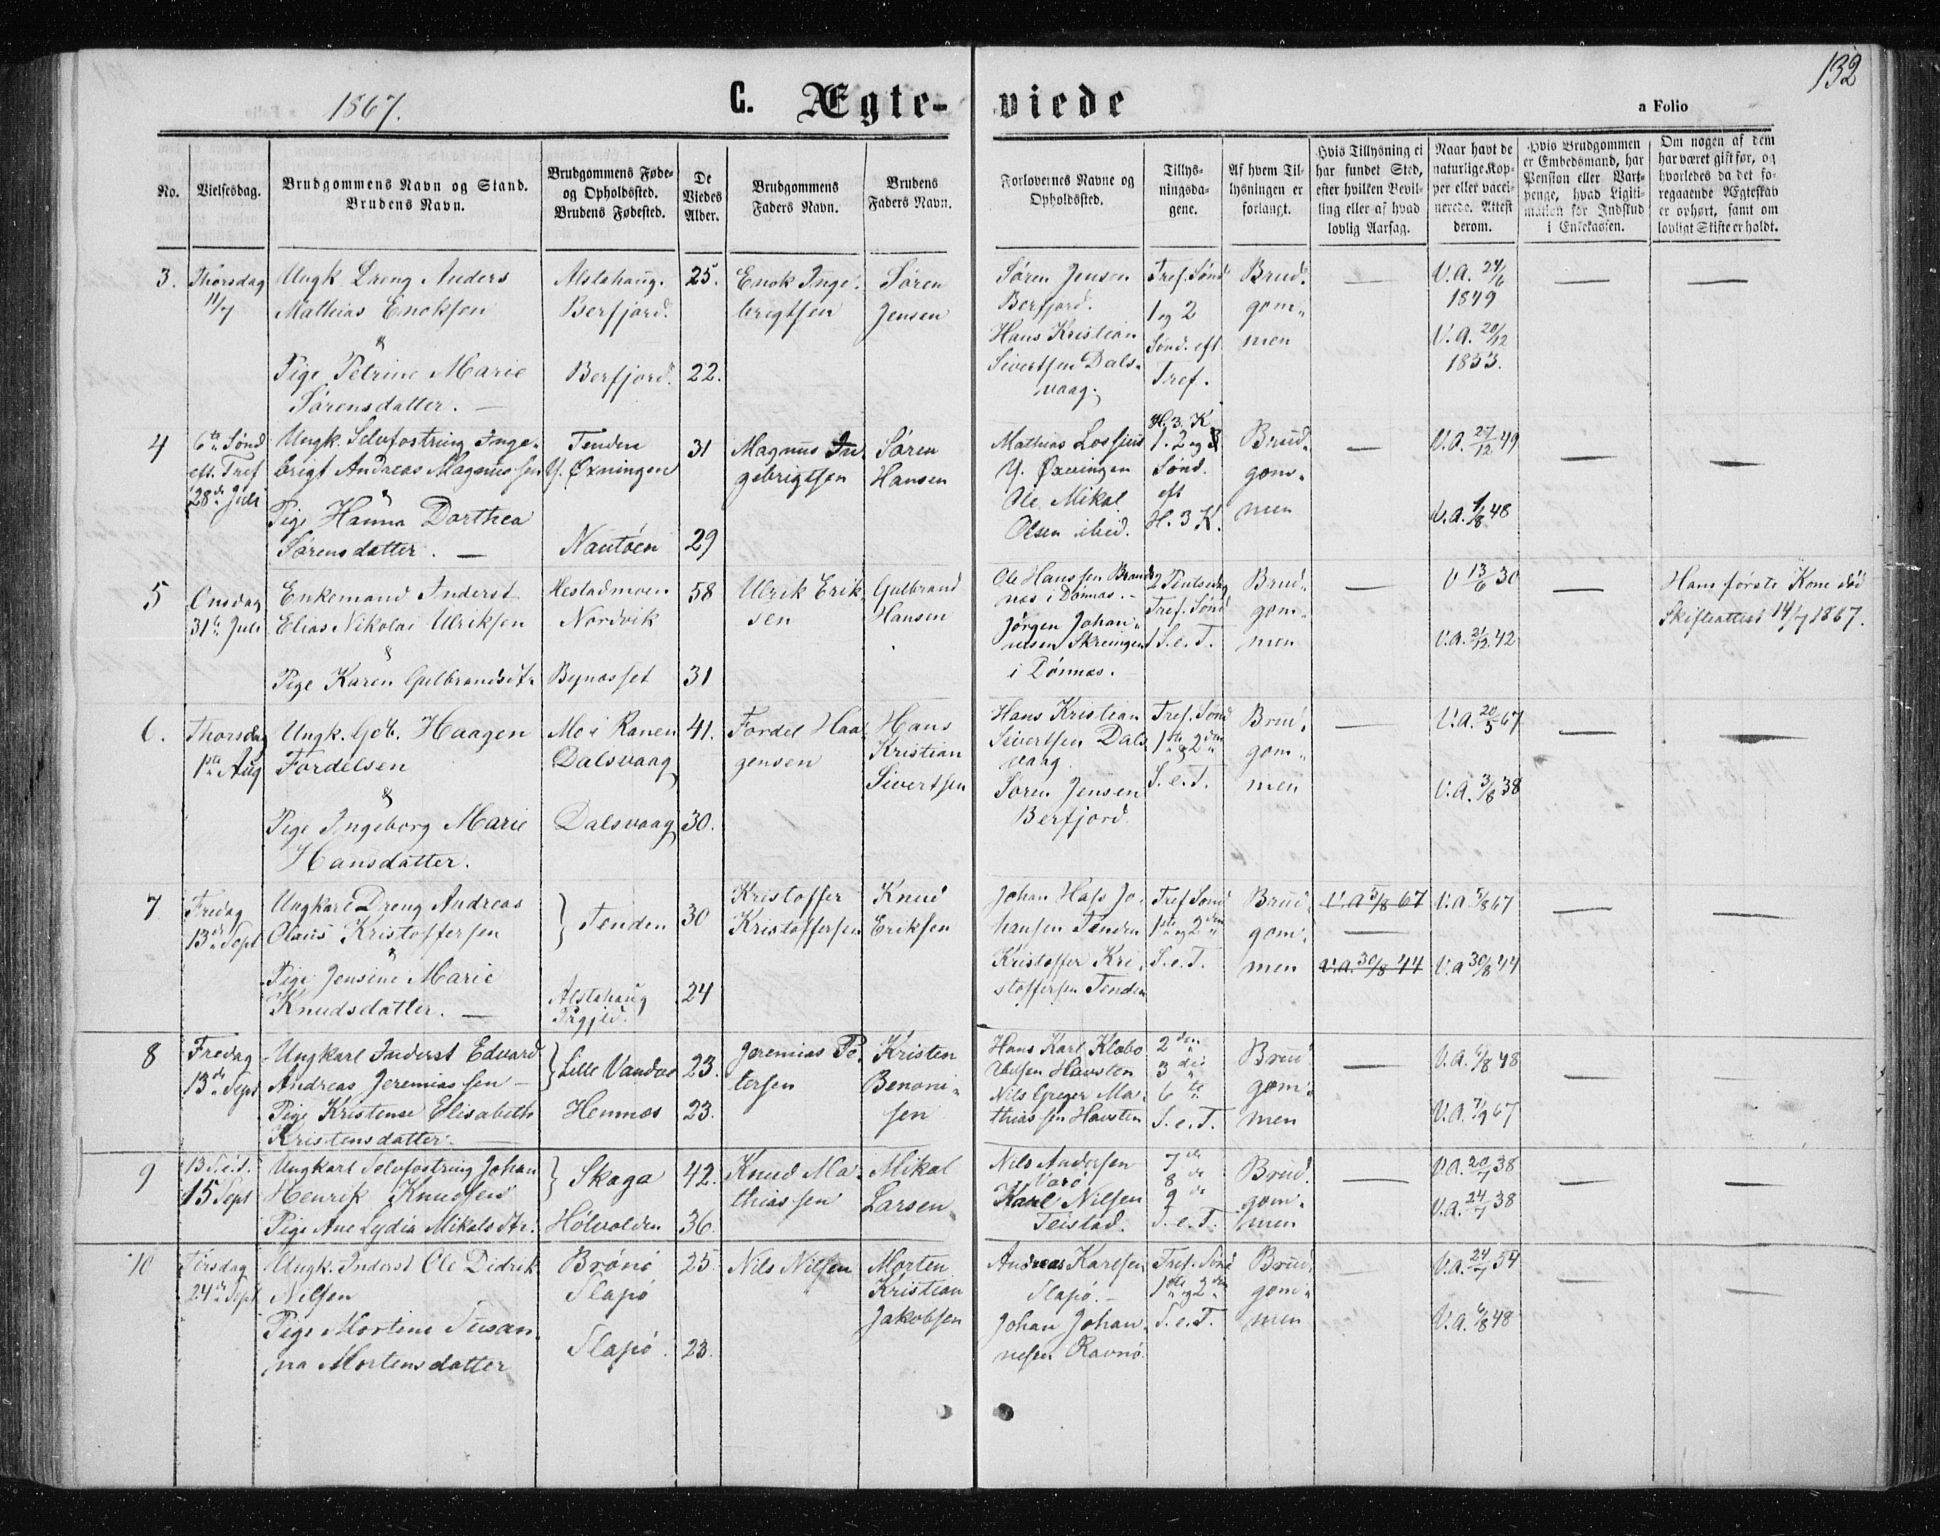 132
1867.
C. Ægte-viede
a Folio
No.
Vielsesdag.
Brudgommens Navn og Stand.
Brudens Navn.
Brudgommens Føde-
og Opholdssted.
Brudens Fødested.
De
Viedes
Alder.
Brudgommens
Faders Navn.
Brudens
Faders Navn.
Forlovernes Navne og
Opholdssted.
Tillys-
ningsda-
gene.
Af hvem Til-
lysningen er
forlangt.
Hvis Tillysning ei
har fundet Sted,
efter hvilken Bevil-
ling eller af hvad
lovlig Aarsag.
Naar havt de
naturlige Kop-
per eller vacci-
nerede. Attest
derom.
Hvis Brudgommen
er Embedsmand, har
Pension eller Vart-
penge, hvad Ligiti-
mation for Indskud
i Enkekassen.
Om nogen af dem
har været gift før, og
hvorledes da det fo-
regaaende Ægteskab
er ophørt, samt om
lovligt Skifte er holdt.
3.
Thorsdag
11/7
Ungk. Dreng Anders
Mathias Enoksen
&
Pige Petrine Marie
Sørensdatter. —
Alstahaug.
Berfjord.
Berfjord.
25.
22.
Enok Inge-
brigtsen
Søren
Jensen
Søren Jensen
Berfjord.
Hans Kristian
Sivertsen Dals-
vaag.
Tref. Sønd
1 og 2
Sønd. eft
Tref.
Brud-
gom-
men
—
V.A. 24/6
1849
V.A. 20/12
1853.
—
—
4
6te Sønd
eft. Tref
28de Juli
Ungk. Selvfostring Inge-
brigt Andreas Magnussen
&
Pige Hanna Dorthea
Sørensdatter. —
Tenden
Y. Øxningen
Nautøen
31
29
Magnus In-
gebrigtsen
Søren
Hansen
Mathias Losjius
Y. Øxningen
Ole Mikal
Olsen ibid.
H. 3 K.
1. 2 og 3
Sønd.
eft
H. 3 K.
Brud-
gom-
men
—
V.A. 27/12 49
V.A. 1/8 48
—
—
5
Onsdag
31te Juli
Enkemand Inderst
Elias Nikolai Ulriksen
&
Pige Karen Gulbrandsdt.
Hestadmoen
Nordvik
Bynæsset
58
31
Ulrik Erik-
sen
Gulbrand
Hansen
Ole Hanssen Brands-
næs i Dønnæs. —
Jørgen Johan-
nesen Skeiningen
i Dønnæs.
2 Pintsedag
Tref. Sønd
1 S. e. T.
Brud-
gom-
men
—
V 13/6 30
V.A. 21/12 42
—
Hans første Kone død
Skifteattest 14/7 1867.
6.
Thorsdag
1ste Aug
Ungk. Gdb. Haagen
Fordelsen
&
Pige Ingeborg Marie
Hansdatter.
Mo i Ranen
Dalsvaag
Dalsvaag
41.
30.
Fordel Haa-
gensen
Hans
Kristian
Sivertsen
Hans Kristian
Sivertsen Dals-
vaag
Søren Jensen
Berfjord.
Tref. Sønd
1ste & 2den
S. e. T.
Brud-
gom-
men
—
V.A. 20/5 67
V.A. 3/8 38
—
—
7
Fredag
13de Sept
Ungkarl Dreng Andreas
Olaus Kristoffersen
&
Pige Jensine Marie
Knudsdatter. —
Tenden
Alstahaug
Prgjld.
30
24
Kristoffer
Kristoffersen
Knud
Eriksen
Johan Hass Jo-
hansen Tenden
Kristoffer Kri-
stoffersen Tenden
Tref. Sønd
1ste og 2den
S. e. T.
Brud-
gom-
men
V.A 5/8 67
—
V.A. 30/8 44
V.A 5/8 67
V.A 30/8 44
—
—
8
Fredag
13de Sept
Ungkarl Inderst Edvard
Andreas Jeremiassen —
Pige Kristense Elisabeth
Kristensdatter. —
Lille Vandved
Hemnæs
23.
23.
Jeremias Pe-
tersen
Kristen
Benoni-
sen
Hans Karl Klæbo
Havsten
Nils Greger Ma-
thiassen Havsten
2den
3die
6te
S. e. T.
Brud-
gom-
men
—
V.A. 6/8 48
V.A. 7/9 67
—
—
9
13 S. e. T.
15 Sept
Ungkarl Selvfostring Johan
Henrik Knudsen
Pige Ane Lydia Mikalsdtr.
Skaga
Hølvolden
42.
36.
Knud Ma-
thiassen
Mikal
Larsen
Nils Andersen
Varø
Karl Nilsen
Teistad.
7de
8de
9de
S. e. T.
Brud-
gom-
men
—
V.A. 20/7 38
V.A. 24/7 38
—
—
10
Tirsdag
24de Sept
Ungk. Inderst Ole Didrik
Nilsen
Pige Mortine Susan-
na Mortensdatter
Brønø
Slapø
Slapø.
25.
23.
Nils Nilsen
Morten
Kristian
Jakobsen
Andreas Karlsen
Slapø. —
Johan Johan-
nesen Ravnø
Tref. Sønd
1ste og 2den
S. e. T.
Brud-
gom-
men
V.A. 24/7 54
V.A. 6/8 48
—
—